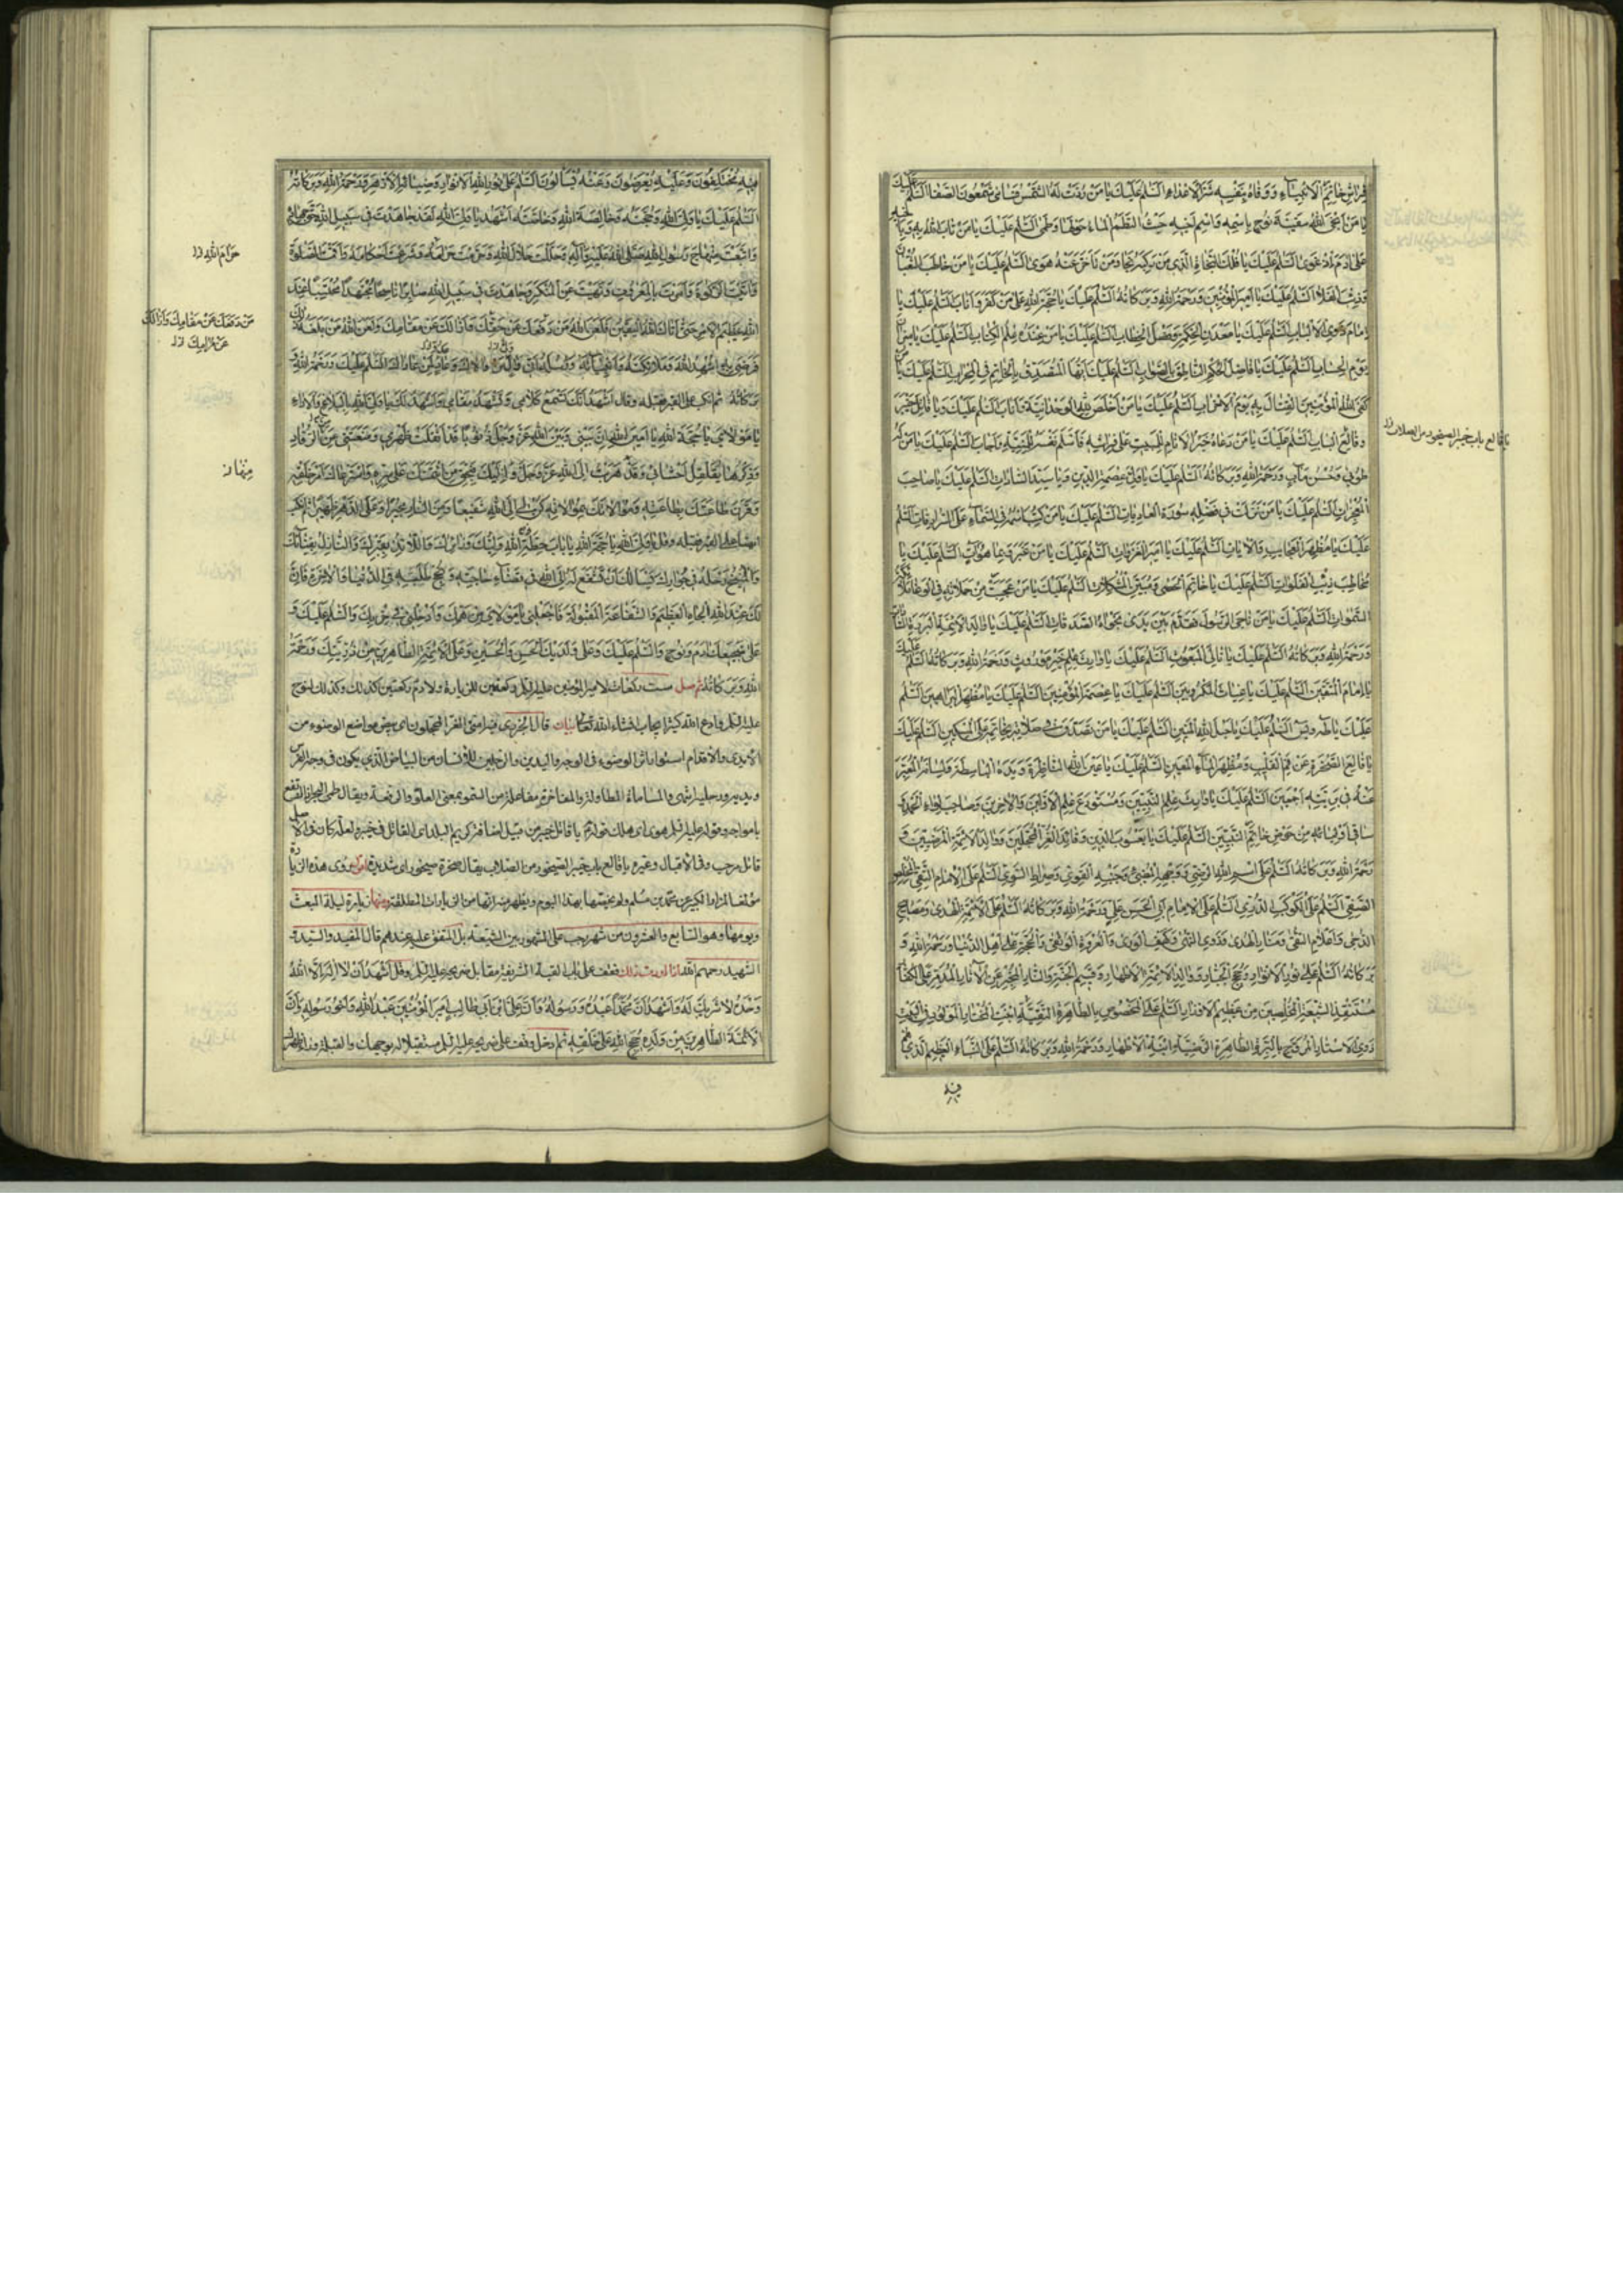 فِراشِ خاتَمِ الأنبِيآءِ وَوَقاهُ بِنَفسِهِ شَرَّ الأعداءِ السَّلمُ عَلَيكَ يا مَن رُدَّت لَهُ الشَّمسُ فَسامى شَمعُونَ الصَّفا السَّلمُ عَلَيكَ
يا مَن أنجَى اللهُ سَفينَةَ نُوحٍ بِاسمِهِ وَاسمِ أخيهِ حَيثُ التَطَمَ الماءُ حَولَها وَطَمى السَّلمُ عَلَيكَ يا مَن تابَ اللهُ بِهِ وَبِأخيهِ
عَلى آدَمَ إذ غَوى السَّلمُ عَلَيكَ يا فُلكَ النَّجاةِ الَّذي مَن رَكِبَهُ نَجا وَمَن تَأخَّرَ عَنهُ هَوى السَّلمُ عَلَيكَ يا مَن خاطَبَ الثُّعبانَ
وَذِئبَ الفَلا السَّلمُ عَلَيكَ يا أميرَ المُؤمِنينَ وَرَحمَةُ اللهِ وَبَرَكاتُهُ السَّلمُ عَلَيكَ يا حُجَّةَ اللهِ عَلى مَن كَفَرَ وَأنابَ السَّلمُ عَلَيكَ يا
إمامَ ذَوِي الألبابِ السَّلمُ عَلَيكَ يا مَعدِنَ الحِكمَةِ وَفَصلَ الخِطابِ السَّلمُ عَلَيكَ يا مَن عِندَهُ عِلمُ الكِتابِ السَّلمُ عَلَيكَ يا ميزانَ
يَومِ الحِسابِ السَّلمُ عَلَيكَ يا فاصِلَ الحُكمِ النّاطِقَ بِالصَّوابِ السَّلمُ عَلَيكَ أيُّهَا المُتَصَدِّقُ بِالخاتَمِ فِي المِحرابِ السَّلمُ عَلَيكَ يا مَن
كَفَى اللهُ المُؤمِنينَ القِتالَ بِهِ يَومَ الأحزابِ السَّلمُ عَلَيكَ يا مَن أخلَصَ لِلّهِ الوَحدانِيَّةَ وَأنابَ السَّلمُ عَلَيكَ وَيا قاتِلَ خَيبَرَ
وَقالِعَ البابِ السَّلمُ عَلَيكَ يا مَن دَعاهُ خَيرُ الأنامِ لِلمَبيتِ عَلى فِراشِهِ فَأسلَمَ نَفسَهُ لِلمَنِيَّةِ وَأجابَ السَّلمُ عَلَيكَ يا مَن لَهُ
طُوبى وَحُسنُ مَآبٍ وَرَحمَةُ اللهِ وَبَرَكاتُهُ السَّلمُ عَلَيكَ يا وَلِيَّ عِصمَةِ الدّينِ وَيا سَيِّدَ السّاداتِ السَّلمُ عَلَيكَ يا صاحِبَ
المُعجِزاتِ السَّلمُ عَلَيكَ يا مَن نَزَلَت في فَضلِهِ سُورَةُ العادِياتِ السَّلمُ عَلَيكَ يا مَن كُتِبَ اسمُهُ فِي السَّمآءِ عَلَى السُّرادِقاتِ السَّلمُ
عَلَيكَ يا مُظهِرَ العَجايِبِ وَالآياتِ السَّلمُ عَلَيكَ يا أميرَ الغَزَواتِ السَّلمُ عَلَيكَ يا مُخبِراً بِما غَبَرَ وَبِما هُوَ آتٍ السَّلمُ عَلَيكَ يا
مُخاطِبَ ذِئبِ الفَلَواتِ السَّلمُ عَلَيكَ يا خاتِمَ الحَصى وَمُبَيِّنَ المُشكِلاتِ السَّلمُ عَلَيكَ يا مَن عَجِبَت مِن حَمَلاتِهِ فِي الوَغا مَلائِكَةُ
السَّمواتِ السَّلمُ عَلَيكَ يا مَن ناجَى الرَّسُولَ فَقَدَّمَ بَينَ يَدَي نَجواهُ الصَّدَقاتِ السَّلمُ عَلَيكَ يا والِدَ الأئِمَّةِ البَرَرَةِ السّاداتِ
وَرَحمَةُ اللهِ وَبَرَكاتُهُ السَّلمُ عَلَيكَ يا تالِيَ المَبعُوثِ السَّلمُ عَلَيكَ يا وارِثَ عِلمِ خَيرِ مَورُوثٍ وَرَحمَةُ اللهِ وَبَرَكاتُهُ السَّلمُ عَلَيكَ
يا إمامَ المُتَّقينَ السَّلمُ عَلَيكَ يا غِياثَ المَكرُوبينَ السَّلمُ عَلَيكَ يا عِصمَةَ المُؤمِنينَ السَّلمُ عَلَيكَ يا مُظهِرَ البَراهينِ السَّلمُ
عَلَيكَ يا طه وَيس السَّلمُ عَلَيكَ يا حَبلَ اللهِ المَتينِ السَّلمُ عَلَيكَ يا مَن تَصَدَّقَ في صَلاتِهِ بِخاتَمِهِ عَلَى المِسكينِ السَّلمُ عَلَيكَ
يا قالِعَ الصَّخرَةِ عَن فَمِ القَليبِ وَمُظهِرَ المآءِ المَعينِ السَّلمُ عَلَيكَ يا عَينَ اللهِ النّاظِرَةَ وَيَدَهُ الباسِطَةَ وَلِسانَهُ المُعَبِّرَ
عَنهُ في بَرِيَّتِهِ أجمَعينَ السَّلمُ عَلَيكَ يا وارِثَ عِلمِ النَّبِيّينَ وَمُستَودَعَ عِلمِ الأوَّلينَ وَالآخِرينَ وَصاحِبَ لِواءِ الحَمدِ وَ
ساقِيَ أولِيائِهِ مِن حَوضِ خاتَمِ النَّبِيّينَ السَّلمُ عَلَيكَ يا يَعسُوبَ الدّينِ وَقائِدَ الغُرِّ المُحَجَّلينَ وَوالِدَ الأئِمَّةِ المَرضِيّينَ وَ
رَحمَةُ اللهِ وَبَرَكاتُهُ السَّلمُ عَلَى اسمِ اللهِ الرَّضِيِّ وَوَجهِهِ المُضيءِ وَجَنبِهِ القَوِيِّ وَصِراطِهِ السَّوِيِّ السَّلمُ عَلَى الإمامِ التَّقِيِّ المُخلِصِ
الصَّفِيِّ السَّلمُ عَلَى الكَوكَبِ الدُّرِّيِّ السَّلمُ عَلَى الإمامِ أبِي الحَسَنِ عَلِيٍّ وَرَحمَةُ اللهِ وَبَرَكاتُهُ السَّلمُ عَلى أئِمَّةِ الهُدى وَمَصابيحِ
الدُّجى وَأعلامِ التُّقى وَمَنارِ الهُدى وَذَوِي النُّهى وَكَهفِ الوَرى وَالعُروَةِ الوُثقى وَالحُجَّةِ عَلى أهلِ الدُّنيا وَرَحمَةُ اللهِ وَ
بَرَكاتُهُ السَّلمُ عَلى نُورِ الأنوارِ وَحُجَجِ الجَبّارِ وَوالِدِ الأئِمَّةِ الأطهارِ وَقَسيمِ الجَنَّةِ وَالنّارِ المُخبِرِ عَنِ الآثارِ المُدَمِّرِ عَلَى الكُفّارِ
مُستَنقِذِ الشّيعَةِ المُخلِصينَ مِن عَظيمِ الأوزارِ السَّلمُ عَلَى المَخصُوصِ بِالطّاهِرَةِ التَّقِيَّةِ ابنَةِ المُختارِ المَولُودِ فِي البَيتِ
ذِي الأستارِ المُزَوَّجِ بِالبَرَّةِ الطّاهِرَةِ الرَّضِيَّةِ ابنَةِ الأطهارِ وَرَحمَةُ اللهِ وَبَرَكاتُهُ السَّلمُ عَلَى النَّباءِ العَظيمِ الَّذي هُم
فيه
يا قالع باب خيبر الصيخود من الصلاب
فيهِ مُختَلِفُونَ وَعَلَيهِ يُعرَضُونَ وَعَنهُ يُسألُونَ السَّلمُ عَلى نُورِ اللهِ الأنوَرِ وَضِيائِهِ الأزهَرِ وَرَحمَةُ اللهِ وَبَرَكاتُهُ
السَّلمُ عَلَيكَ يا وَلِيَّ اللهِ وَحُجَّتَهُ وَخالِصَةَ اللهِ وَخاصَّتَهُ أشهَدُ يا وَلِيَّ اللهِ لَقَد جاهَدتَ في سَبيلِ اللهِ حَقَّ جِهادِهِ
وَاتَّبَعتَ مِنهاجَ رَسُولِ اللهِ صَلَّى اللهُ عَلَيهِ وَآلِهِ وَحَلَّلتَ حَلالَ اللهِ وَحَرَّمتَ حَرامَهُ وَشَرَعتَ أحكامَهُ وَأقَمتَ الصَّلوةَ
وَآتَيتَ الزَّكوةَ وَأمَرتَ بِالمَعرُوفِ وَنَهَيتَ عَنِ المُنكَرِ وَجاهَدتَ في سَبيلِ اللهِ صابِراً ناصِحاً مُجتَهِداً مُحتَسِباً عِندَ
اللهِ عَظيمَ الأجرِ حَتّى أتاكَ اليَقينُ فَلَعَنَ اللهُ مَن دَفَعَكَ عَن حَقِّكَ وَأزالَكَ عَن مَقامِكَ وَلَعَنَ اللهُ مَن بَلَغَهُ ذلِكَ
فَرَضِيَ بِهِ أُشهِدُ اللهَ وَمَلائِكَتَهُ وَأنبِيآئَهُ وَرُسُلَهُ أنّي وَلِيٌّ لِمَن والاكَ وَعَدُوٌّ لِمَن عاداكَ السَّلمُ عَلَيكَ وَرَحمَةُ اللهِ وَ
بَرَكاتُهُ ثم انكب على القبر فقبله وقال أشهَدُ أنَّكَ تَسمَعُ كَلامي وَتَشهَدُ مَقامي وَأشهَدُ لَكَ يا وَلِيَّ اللهِ بِالبَلاغِ وَالأداءِ
يا مَولايَ يا حُجَّةَ اللهِ يا أمينَ اللهِ إنَّ بَيني وَبَينَ اللهِ عَزَّ وَجَلَّ ذُنُوباً قَد أثقَلَت ظَهري وَمَنَعَتني مِنَ الرُّقادِ
وَذِكرُها يُقَلقِلُ أحشائي وَقَد هَرَبتُ إلَى اللهِ عَزَّ وَجَلَّ وَإلَيكَ فَبِحَقِّ مَنِ ائتَمَنَكَ عَلى سِرِّهِ وَاستَرعاكَ أمرَ خَلقِهِ
وَقَرَنَ طاعَتَكَ بِطاعَتِهِ وَمُوالاتَكَ بِمُوالاتِهِ كُن لي إلَى اللهِ شَفيعاً وَمِنَ النّارِ مُجيراً وَعَلَى الدَّهرِ ظَهيراً ثم انكب
ايضا على القبر فقبله وقل يا وَلِيَّ اللهِ يا حُجَّةَ اللهِ يا بابَ حِطَّةِ اللهِ وَلِيُّكَ وَزائِرُكَ وَاللّائِذُ بِقَبرِكَ وَالنّازِلُ بِفِنائِكَ
وَالمُنيخُ رَحلَهُ في جِوارِكَ يَسألُكَ أن تَشفَعَ لَهُ إلَى اللهِ في قَضآءِ حاجَتِهِ وَنُجحِ طَلِبَتِهِ فِي الدُّنيا وَالآخِرَةِ فَإنَّ
لَكَ عِندَ اللهِ الجاهَ العَظيمَ وَالشَّفاعَةَ المَقبُولَةَ فَاجعَلني يا مَولايَ مِن هَمِّكَ وَأدخِلني في حِزبِكَ وَالسَّلمُ عَلَيكَ وَ
عَلى ضَجيعَيكَ آدَمَ وَنُوحٍ وَالسَّلمُ عَلَيكَ وَعَلى وَلَدَيكَ الحَسَنِ وَالحُسَينِ وَعَلَى الأئِمَّةِ الطّاهِرينَ مِن ذُرِّيَّتِكَ وَرَحمَةُ
اللهِ وَبَرَكاتُهُ ثم صل ست ركعات لامير المؤمنين عليه السلم ركعتين للزيارة ولآدم ركعتين كذلك وكذلك لنوح
عليه السلم وادع الله كثيرا يجاب انشاء الله تعالى بيان قال الجزري فيه امتي الغر المحجلون اى بيض مواضع الوضوء من
الايدى والاقدام استعار اثر الوضوء في الوجه واليدين والرجلين للانسان من البياض الذي يكون في وجه الفرس
ويديه ورجليه انتهى والمساماة المطاولة والمفاخرة مفاعلة من السمو بمعنى العلو والرفعة ويقال طمى البحر اذا ارتفع
بامواجه وقوله عليه السلم هوى اى هلك قوله يا قاتل خيبر من قبيل اضافة كريم البلد اى القاتل في خيبر ولعله كان في الاصل
قاتل مرحب وفى الاقبال وغيره يا قالع باب خيبر الصيخود من الصلاب يقال صخرة صيخود اى شديدة اقول روى هذه الزيارة
مؤلف المزار الكبير عن محمد بن مسلم ولم يخصها بهذا اليوم ويظهر منه انها من الزيارات المطلقة ومنها زيارة ليلة المبعث
ويومها وهو السابع والعشرون من شهر رجب على المشهور بين الشيعة بل المتفق عليه عندهم قال المفيد والسيد و
الشهيد رحمهم الله اذا اردت ذلك فقف على باب القبة الشريفة مقابل ضريحه عليه السلم وقل أشهَدُ أن لا إلهَ إلَّا اللهُ
وَحدَهُ لا شَريكَ لَهُ وَأشهَدُ أنَّ مُحَمَّداً عَبدُهُ وَرَسُولُهُ وَأنَّ عَلِيَّ ابنَ أبي طالِبٍ أميرَ المُؤمِنينَ عَبدُ اللهِ وَأخُو رَسُولِهِ وَأنَّ
الأئِمَّةَ الطّاهِرينَ مِن وُلدِهِ حُجَجُ اللهِ عَلى خَلقِهِ ثم ادخل وقف على ضريحه عليه السلم مستقبلا له بوجهك والقبلة وراء ظهرك
حَرامَ اللهِ
مَن دَفَعَكَ عَن مَقامِكَ وَأزالَكَ
عَن مَراتِبِكَ